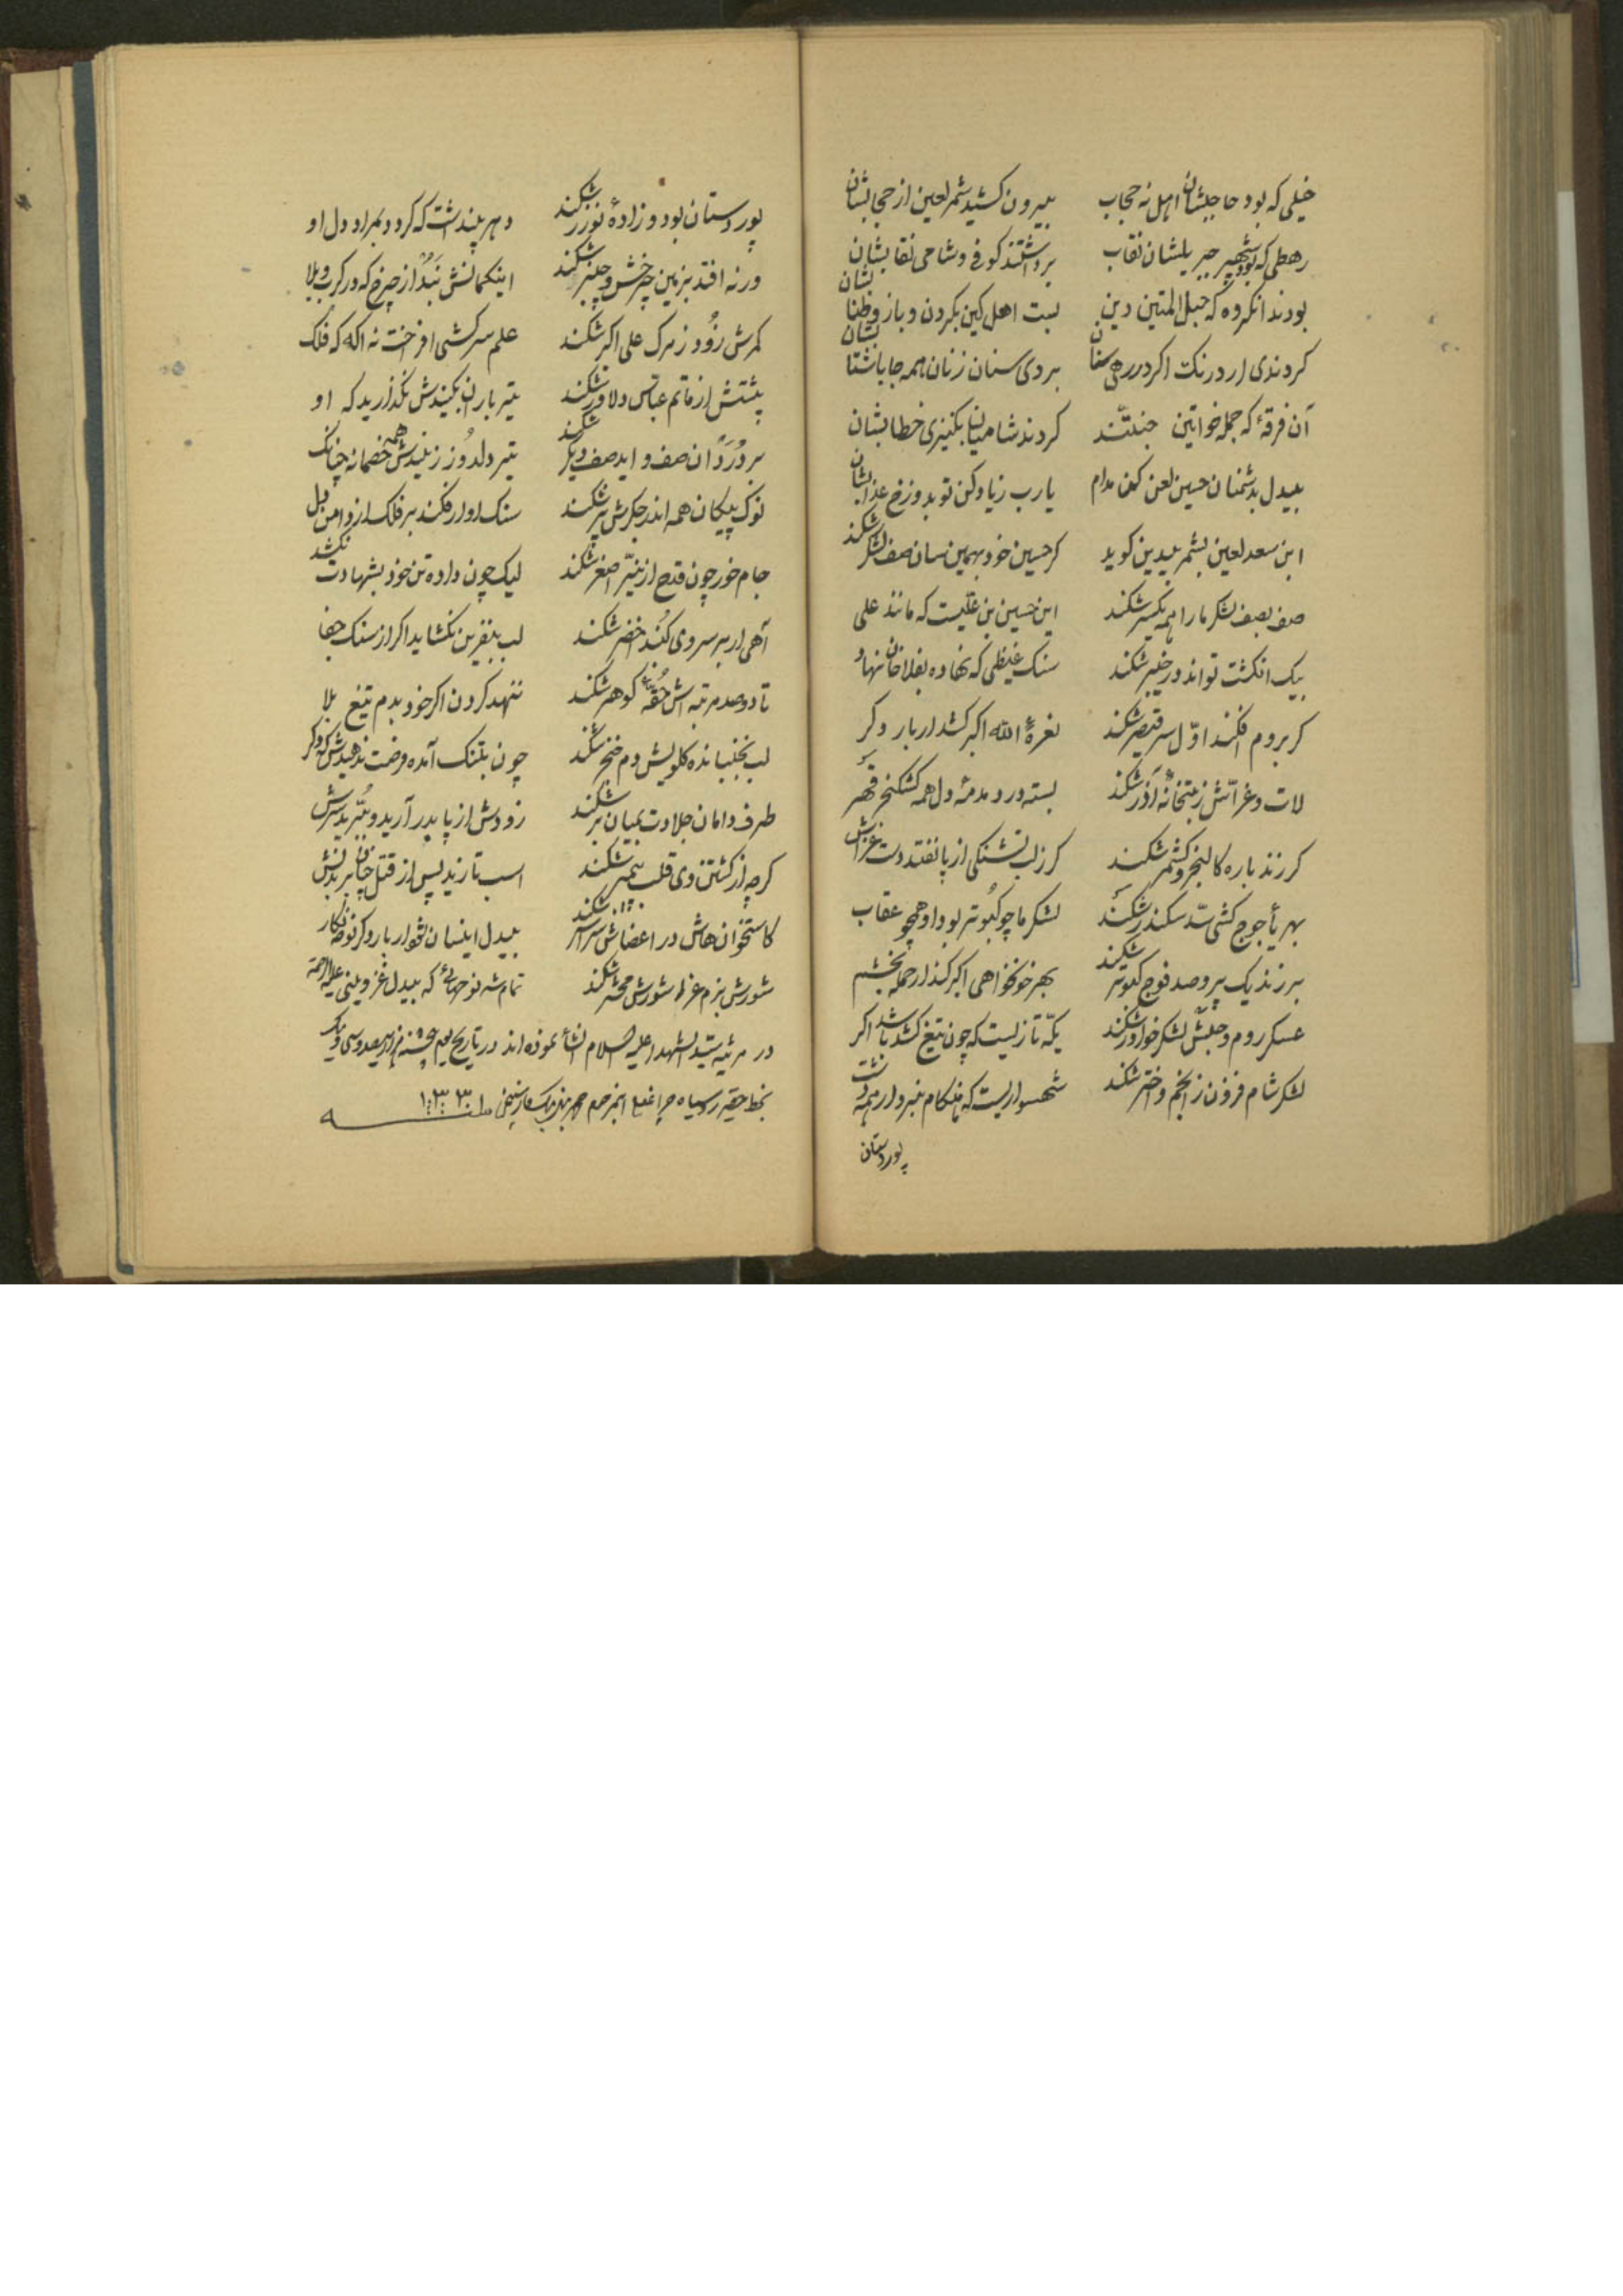 خیلی که بود حاجبشان اهل نه حجاب بیرون کشید شمر لعین از حجابشان
رهطی که بود شهپر جبریلشان نقاب برداشتند کوفی و شامی نقابشان
بودند انکروه که حبل المتین دین بست اهل کین بکردن و بازو طنابشان
کردندی ار درنک اکر در رهی سنان بر دی سنان زنان همه جا باشتابشان
آن فرقهٔ که جمله خواتین جنتند کردند شامیان بکنیزی خطابشان
بیدل بدشمنان حسین لعن کن مدام یارب زیاد کن تو بدوزخ عذابشان
ابن سعد لعین بشمر بیدین کوید کر حسین خود بهمین سان صف لشکر شکند
صف بصف لشکر ما را همه یکسر شکند این حسین بن علیست که مانند علی
بیک انکشت تواند در خیبر شکند سنک غیظی که نهاده بفلاخان نهاد
کر بروم افکند اول سر قیصر شکند نعرهٔ الله اکبر کشد ار بار دکر
لات و عزاش ز بتخانهٔ آذر شکند بسته در و مدمهٔ دل همه کشکنجر قهر
کر زند باره کالنجر و کشمر شکند کر ز لب تشنکی از پا نفتد دست
بهر یأجوج کشی سد سکندر شکند لشکر ما چو کبوتر بود او همچو عقاب
بر زند یک پر و صد فوج کبوتر شکند بهر خونخواهی اکبر کند ار حمله بخشم
عسکر روم و حبش لشکر خواور شکند یکه تازیست که چون تیغ کشد باشد اکر
لشکر شام فزون ز انجم و اختر شکند شهسواریست که هنکام نبرد ار همه
پور دستان
پور دستان بود و زادهٔ نوذر شکند دهر پنداشت که کردد بمراد دل او
ورنه افتد بزمین چرخش و چنبر شکند اینکمانش نبد از چرخ که در کرب و بلا
کمرش زود ز مرک علی اکبر شکند علم سرکشی افراخت نه اکه که فلک
پشتش از ماتم عباس دلاور شکند تیر باران بکنیدش نکذارید که او
بر درد آن صف و اید صف دیکر شکند تیر دلدوز زنیدش همه خصمانه چنانک
نوک پیکان همه اندر جکرش پر شکند سنک او ار فکند بر فلک از دامن بل
جام خور چون قدح از نیر اصغر شکند لیک چون داده تن خود بشهادت نکشد
آهی ار بر سر وی کنبد اخضر شکند لب بنفرین نکشاید اکر از سنک جفا
تا دو صد مرتبه اش حقه کوهر شکند ننهد کردن اکر خود بدم تیغ بلا
لب بجنبانده کلویش دم خنجر شکند چون بتنک آمده فرصت ندهیدش که دکر
طرف دامان جلادت بمیان بر شکند زودش از پا بدر آرید و ببرید سرش
کرچه از کشتن وی قلب پیمبر شکند اسب تازید پس از قتل چنان بر بدنش
کاستخوان هاش در اعضاش سراسر شکند بیدل اینسان شود ار بار دکر نوحه نکار
شورش بزم عزا شورش محشر شکند تمام شد نوحهائی که بیدل غزوینی علیه الرحمة
در مرثیه سید الشهدا علیه السلام انشأ نموده اند در تاریخ یوم پنجشنبه هزار سیصد و سی و یک
بخط حقیر روسیاه ۱۳۳۰